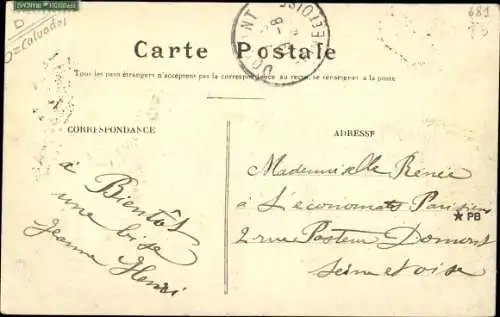 D
D=Calvados
681
Carte Postale
Tous les pays étrangers n'acceptent pas la correspondance au recto, se renseigner à la poste
CORRESPONDANCE
à Bientôt
une bise
Jeanne Henri
ADRESSE
Mademoiselle Renée
à L'économat Parisiens
2 rue Pasteur Domont
Seine et oise
★ PB